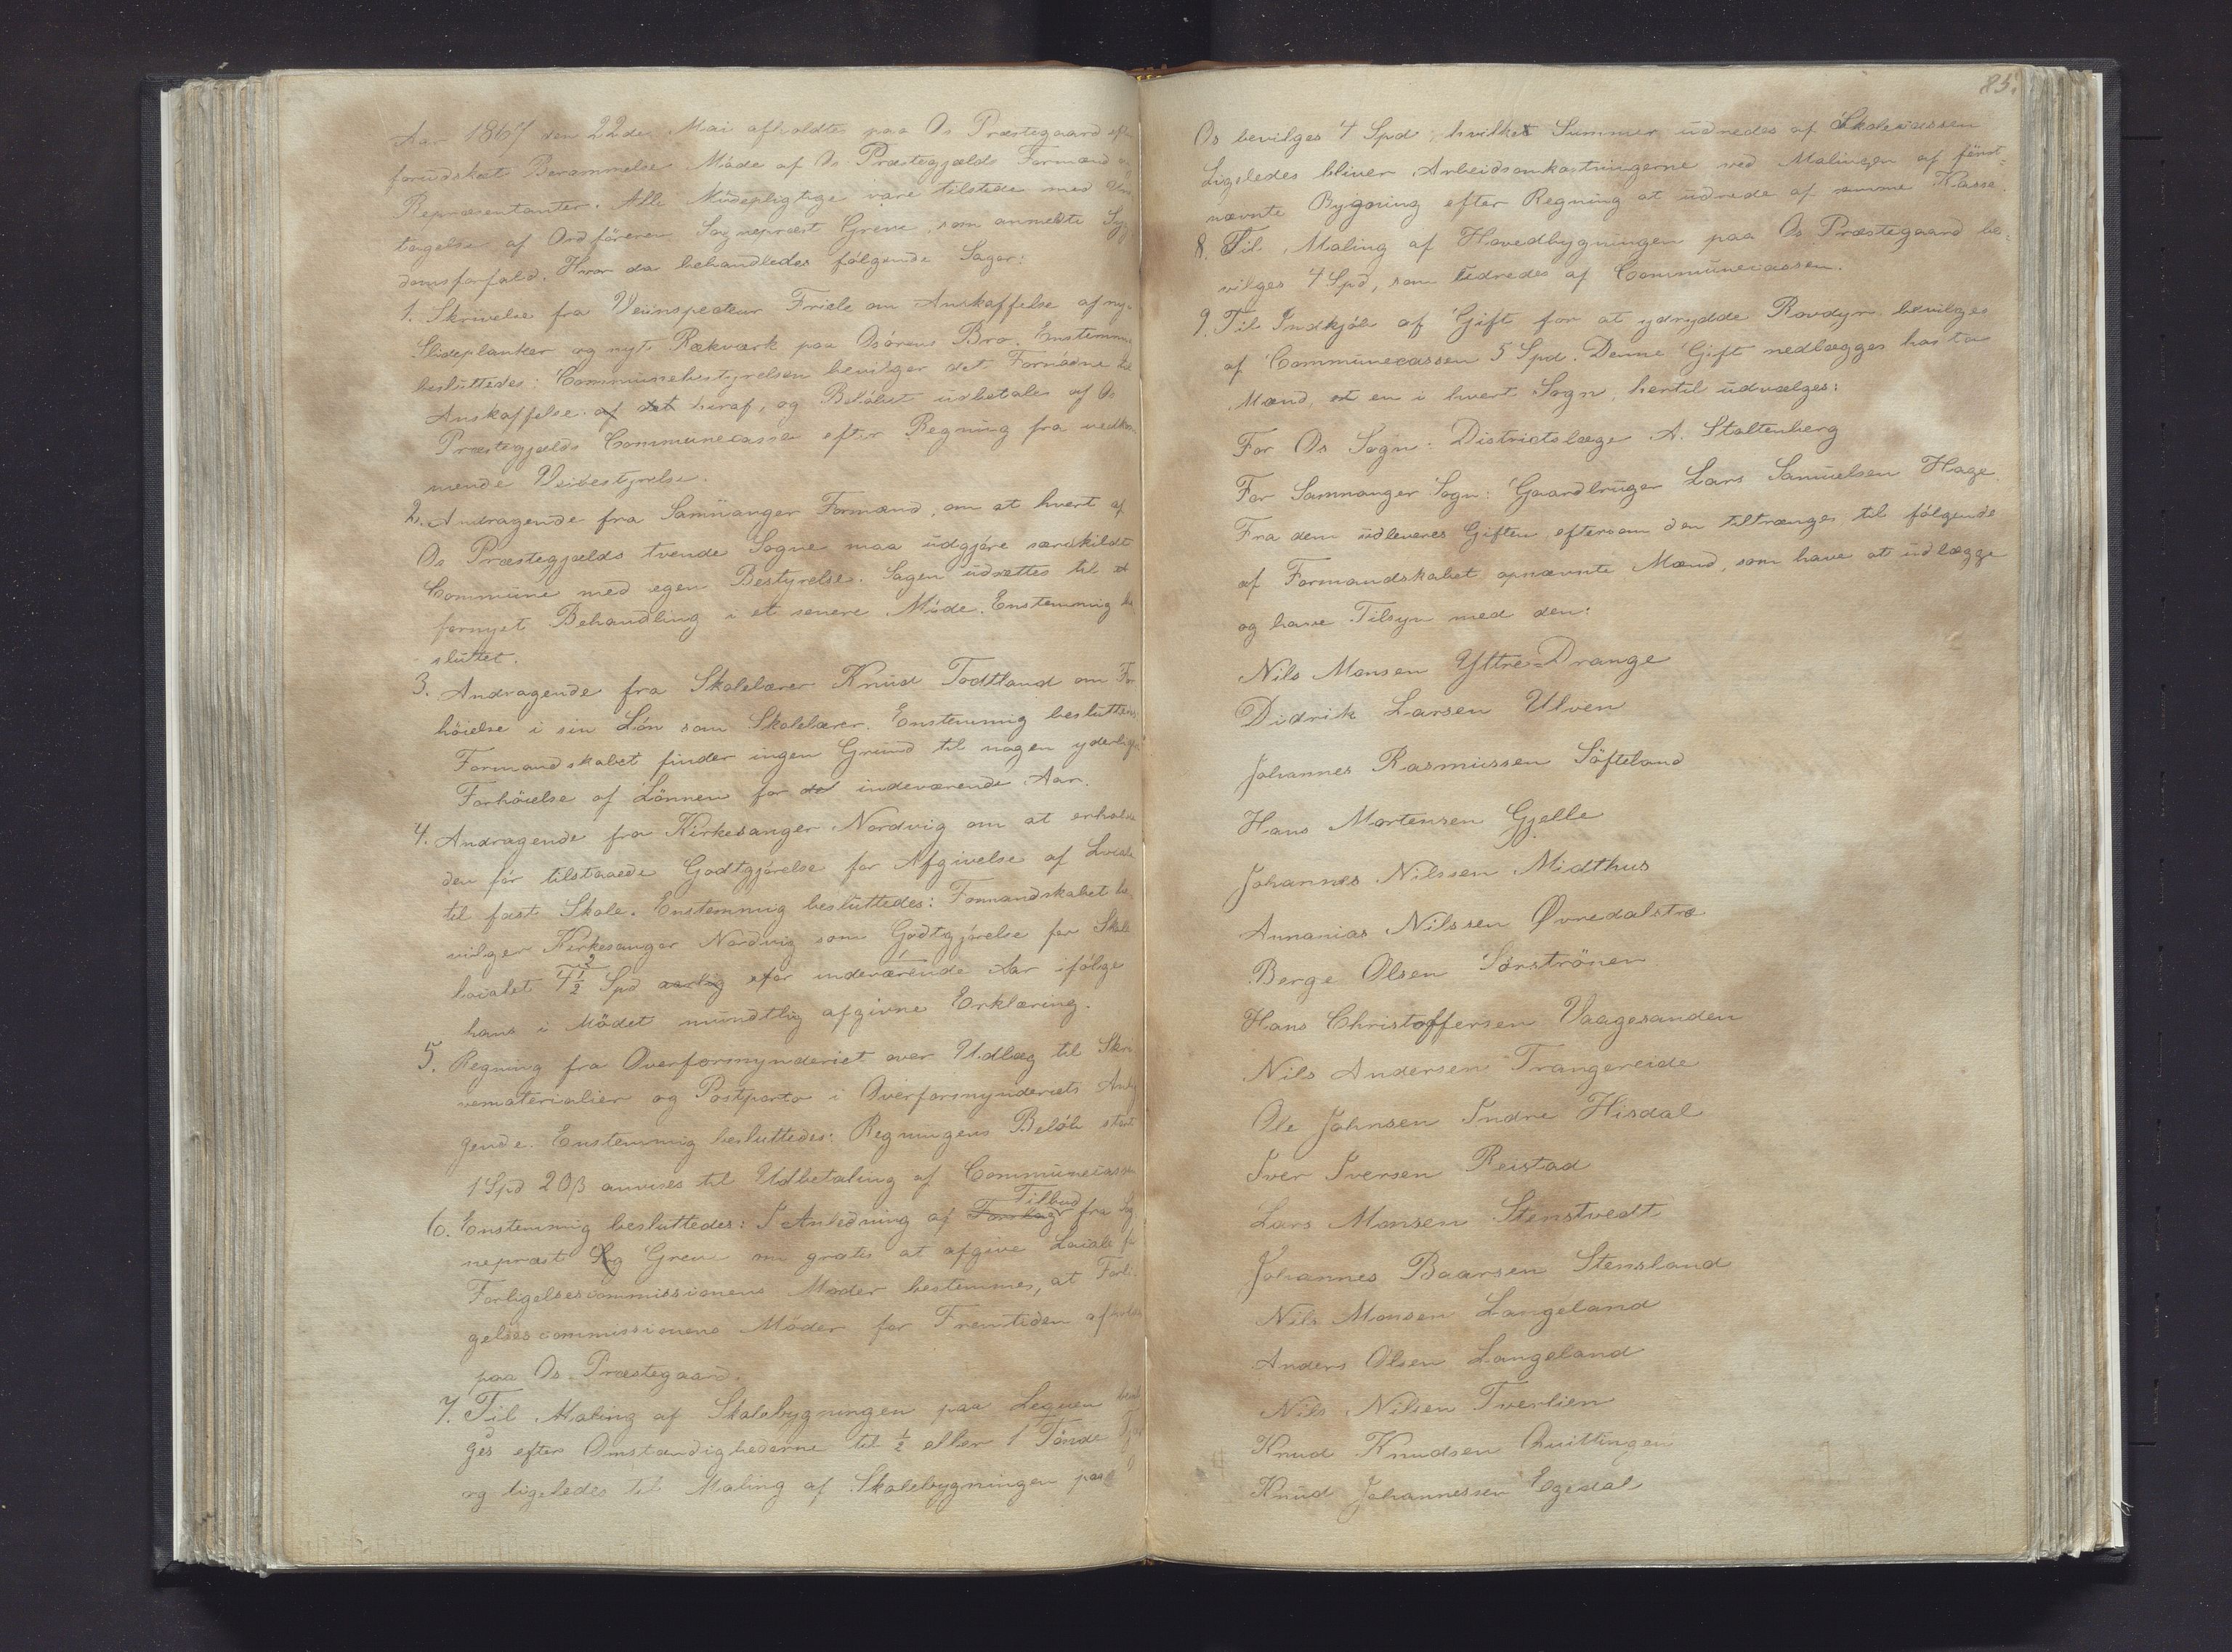 Aar 1867 den 22de Mai afholdtes paa Os Præstegaard efter
forudskeet Berammelse Møde af Os Præstegjælds Formænd og
Repræsentanter. Alle Mødepligtige vare tilstede med Und
tagelse af Ordføreren Sognepræst Greve, som anmeldte Syg
domsforfald. Hvor da behandledes følgende Sager:
1. Skrivelse fra Veiinspecteur Friele om Anskaffelse af nye
Slideplanker og nyt Rækværk paa Osørens Bro. Enstemmig
besluttedes: Communebestyrelsen bevilger det Fornødne til
Anskaffelse af det heraf, og Beløbet udbetales af Os
Præstegjælds Communecasse efter Regning fra vedkom
mende Veibestyrelse.
2. Andragende fra Samnanger Formænd, om at hvert af
Os Præstegjælds tvende Sogne maa udgjøre særskildt
Commune med egen Bestyrelse. Sagen udsættes til et
fornyet Behandling i et senere Møde. Enstemmig be
sluttet.
3. Andragende fra Skolelærer Knud Todtland om For
høielse i sin Løn som Skolelærer. Enstemmig besluttedes
Formandskabet finder ingen Grund til nogen yderligere
Forhøielse af Lønnen for det indeværende Aar.
4. Andragende fra Kirkesanger Nordvig om at erholde
den før tilstaaede Godtgjørelse for Afgivelse af Locale
til fast Skole. Enstemmig besluttedes: Formandskabet be
vilger Kirkesanger Nordvig som Godtgjørelse for Skole
localet 4½ Spd aarlig for indeværende Aar ifølge
hans i Mødet mundtlig afgivne Erklæring.
5. Regning fra Overformynderiet over Udlæg til Skri
vematerialier og Postporto i Overformynderiets Anlig
gende. Enstemmig besluttedes: Regningens Beløb stort
1 Spd 20 β anvises til Udbetaling af Communecassen
6. Enstemmig besluttedes: I Anledning af Forslag Tilbud fra Sog
nepræst Greve om gratis at afgive Locale for
Forligelsescommissionens Møder bestemmes, at Forli
gelsescommissionens Møder for Fremtiden afholdes
paa Os Præstegaard.
7. Til Maling af Skolebygningen paa Legnen bevil
ges efter Omstændighederne til ½ eller 1 Tønde
og ligeledes til Maling af Skolebygningen paa
85.
Os bevilges 4 Spd, hvilket Summer udredes af Skolecassen
Ligeledes bliver Arbeidsomkostningerne ved Malingen af først-
nævnte Bygning efter Regning at udrede af samme Kasse.
8. Til Maling af Hovedbygningen paa Os Præstegaard be-
vilges 4 Spd, som udredes af Communecassen.
9. Til Indkjøb af Gift for at ydrydde Rovdyr bevilges
af Communecassen 5 Spd. Denne Gift nedlægges hos to
Mænd, en i hvert Sogn, hertil udvælges:
For Os Sogn: Districtslæge A. Stoltenberg
For Samnanger Sogn: Gaardbruger Lars Samuelsen Hage.
Fra dem udleveres Giften eftersom den tiltrænges til følgende
af Formandskabet opnævnte Mænd, som have at udlægge
og have Tilsyn med den:
Nils Monsen Yttre-Drange
Didrik Larsen Ulven
Johannes Rasmussen Søfteland
Hans Mortensen Gjelle
Johannes Nilssen Midthus
Annanias Nilssen Øvredalstræ
Berge Olsen Sørstrønen
Hans Christoffersen Vaagesanden
Nils Andersen Trangereide
Ole Johnsen Indre Hisdal
Iver Iversen Reistad
Lars Monsen Stenstvedt
Johannes Baarsen Stensland
Nils Monsen Langeland
Anders Olsen Langeland
Nils Nilsen Tverlien
Knud Knudsen Quittingen
Knud Johannessen Egedal